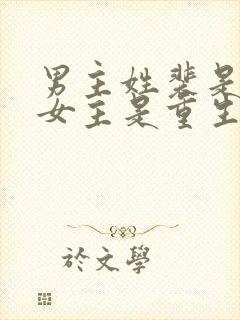 男主姓裴是
女主是重生
於文學